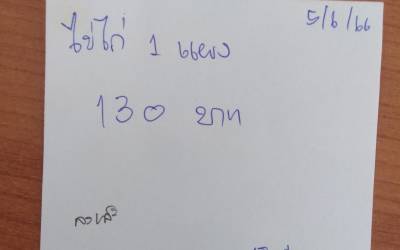 5/6/66
ไข่ไก่ 1 แผง
130 บาท